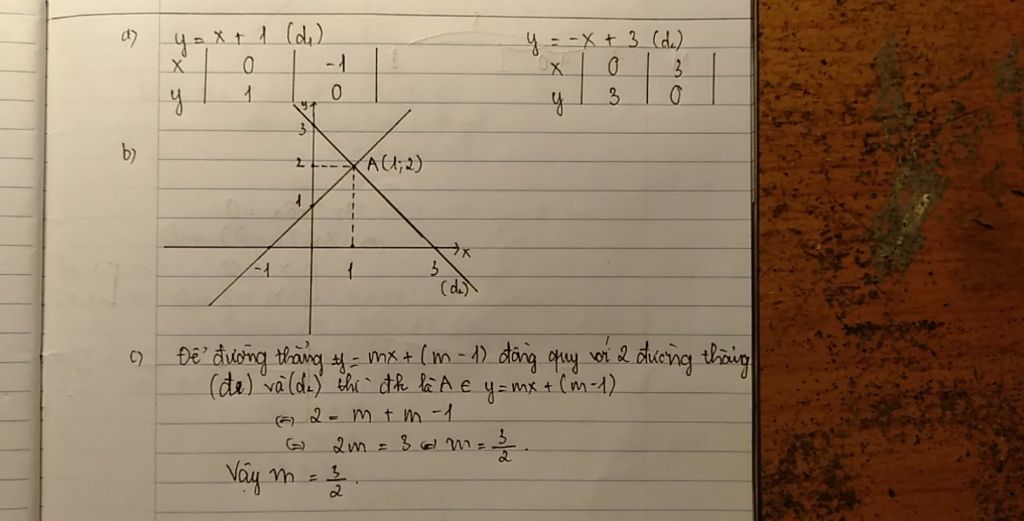 a) y = x + 1 (d₁) y = -x + 3 (d₂)
x | 0 | -1 | x | 0 | 3 |
y | 1 | 0 | y | 3 | 0 |
b)
y
3
2 A(1;2)
1
x
-1 1 3
(d₂)
c) Để đường thẳng y = mx + (m - 1) đồng quy với 2 đường thẳng
(d₁) và (d₂) thì đk là A ∈ y = mx + (m-1)
⇔ 2 = m + m - 1
⇔ 2m = 3 ⇔ m = 3/2.
Vậy m = 3/2.